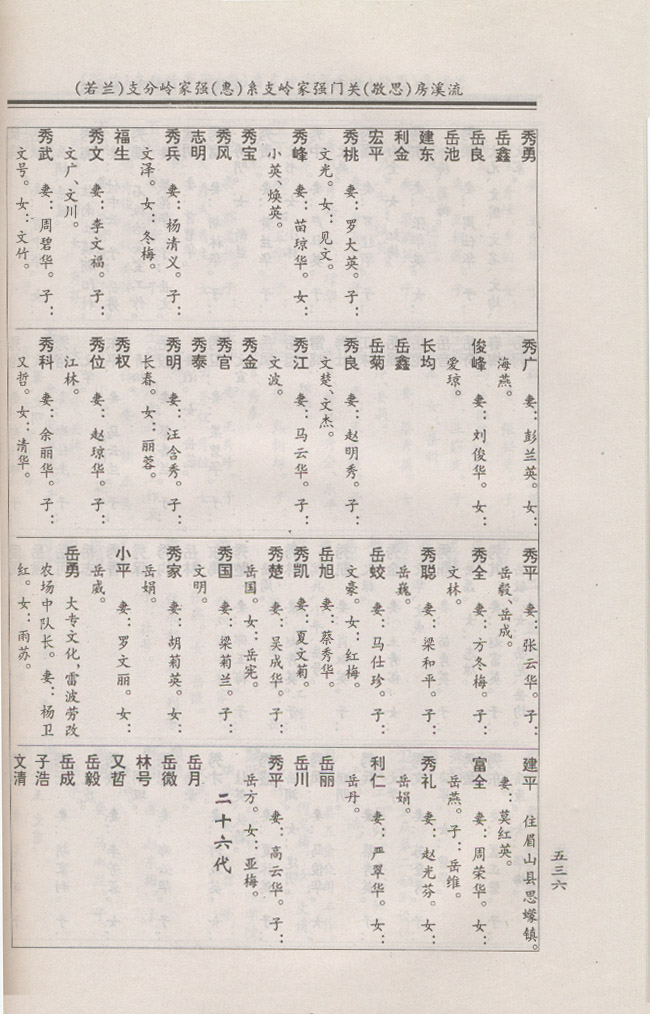 流溪房(思敬)关门强家岭支系(惠)强家岭分支(若兰)
秀勇
岳鑫
岳良
岳池
建东
利金
宏平
秀桃 妻：罗大英。子：
文光。女：见文。
秀峰 妻：苗琼华。女：
小英、焕英。
秀宝
秀风
志明
秀兵 妻：杨清义。子：
文泽。女：冬梅。
福生
秀文 妻：李文福。子：
文广、文川。
秀武 妻：周碧华。子：
文号。女：文竹。
秀广 妻：彭兰英。女：
海燕。
俊峰 妻：刘俊华。女：
爱琼。
长均
岳鑫
岳菊
秀良 妻：赵明秀。子：
文楚、文杰。
秀江 妻：马云华。子：
文波。
秀金
秀官
秀泰
秀明 妻：汪含秀。子：
长春。女：丽蓉。
秀权
秀位 妻：赵琼华。子：
江林。
秀科 妻：余丽华。子：
又哲。女：清华。
秀平 妻：张云华。子：
岳毅、岳成。
秀全 妻：方冬梅。子：
文林。
秀聪 妻：梁和平。子：
岳巍。
岳蛟 妻：马仕珍。子：
文豪。女：红梅。
岳旭 妻：蔡秀华。
秀凯 妻：夏文菊。
秀楚 妻：吴成华。子：
岳国。女：岳宪。
秀国 妻：梁菊兰。子：
文明。
秀家 妻：胡菊英。女：
岳娟。
小平 妻：罗文丽。女：
岳威。
岳勇 大专文化，雷波劳改
农场中队长。妻：杨卫
红。女：雨苏。
建平 住眉山县思濛镇。
妻：莫红英。
富全 妻：周荣华。女：
岳燕。子：岳维。
秀礼 妻：赵光芬。女：
岳娟。
利仁 妻：严翠华。女：
岳丹。
岳丽
岳川
秀平 妻：高云华。子：
岳方。女：亚梅。
二十六代
岳月
岳微
林号
又哲
岳毅
岳成
子浩
文清
五三六